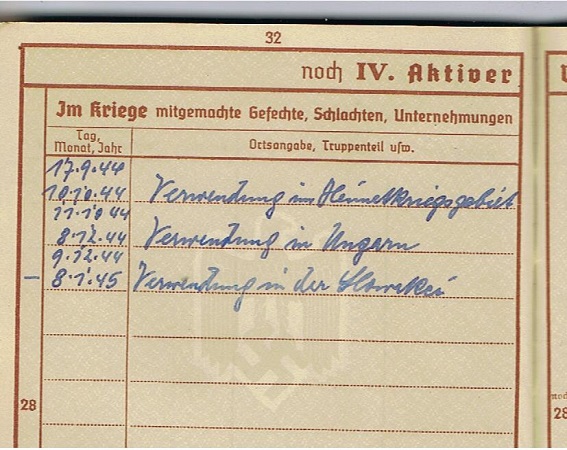 32
noch IV. Aktiver
Im Kriege mitgemachte Gefechte, Schlachten, Unternehmungen
Tag, Monat, Jahr
Ortsangabe, Truppenteil usw.
17.9.44
10.10.44 Verwendung im Heimatkriegsgebiet
11.10.44
8.12.44 Verwendung in Ungarn
9.12.44
– 8.1.45 Verwendung in der Slowakei
28
28